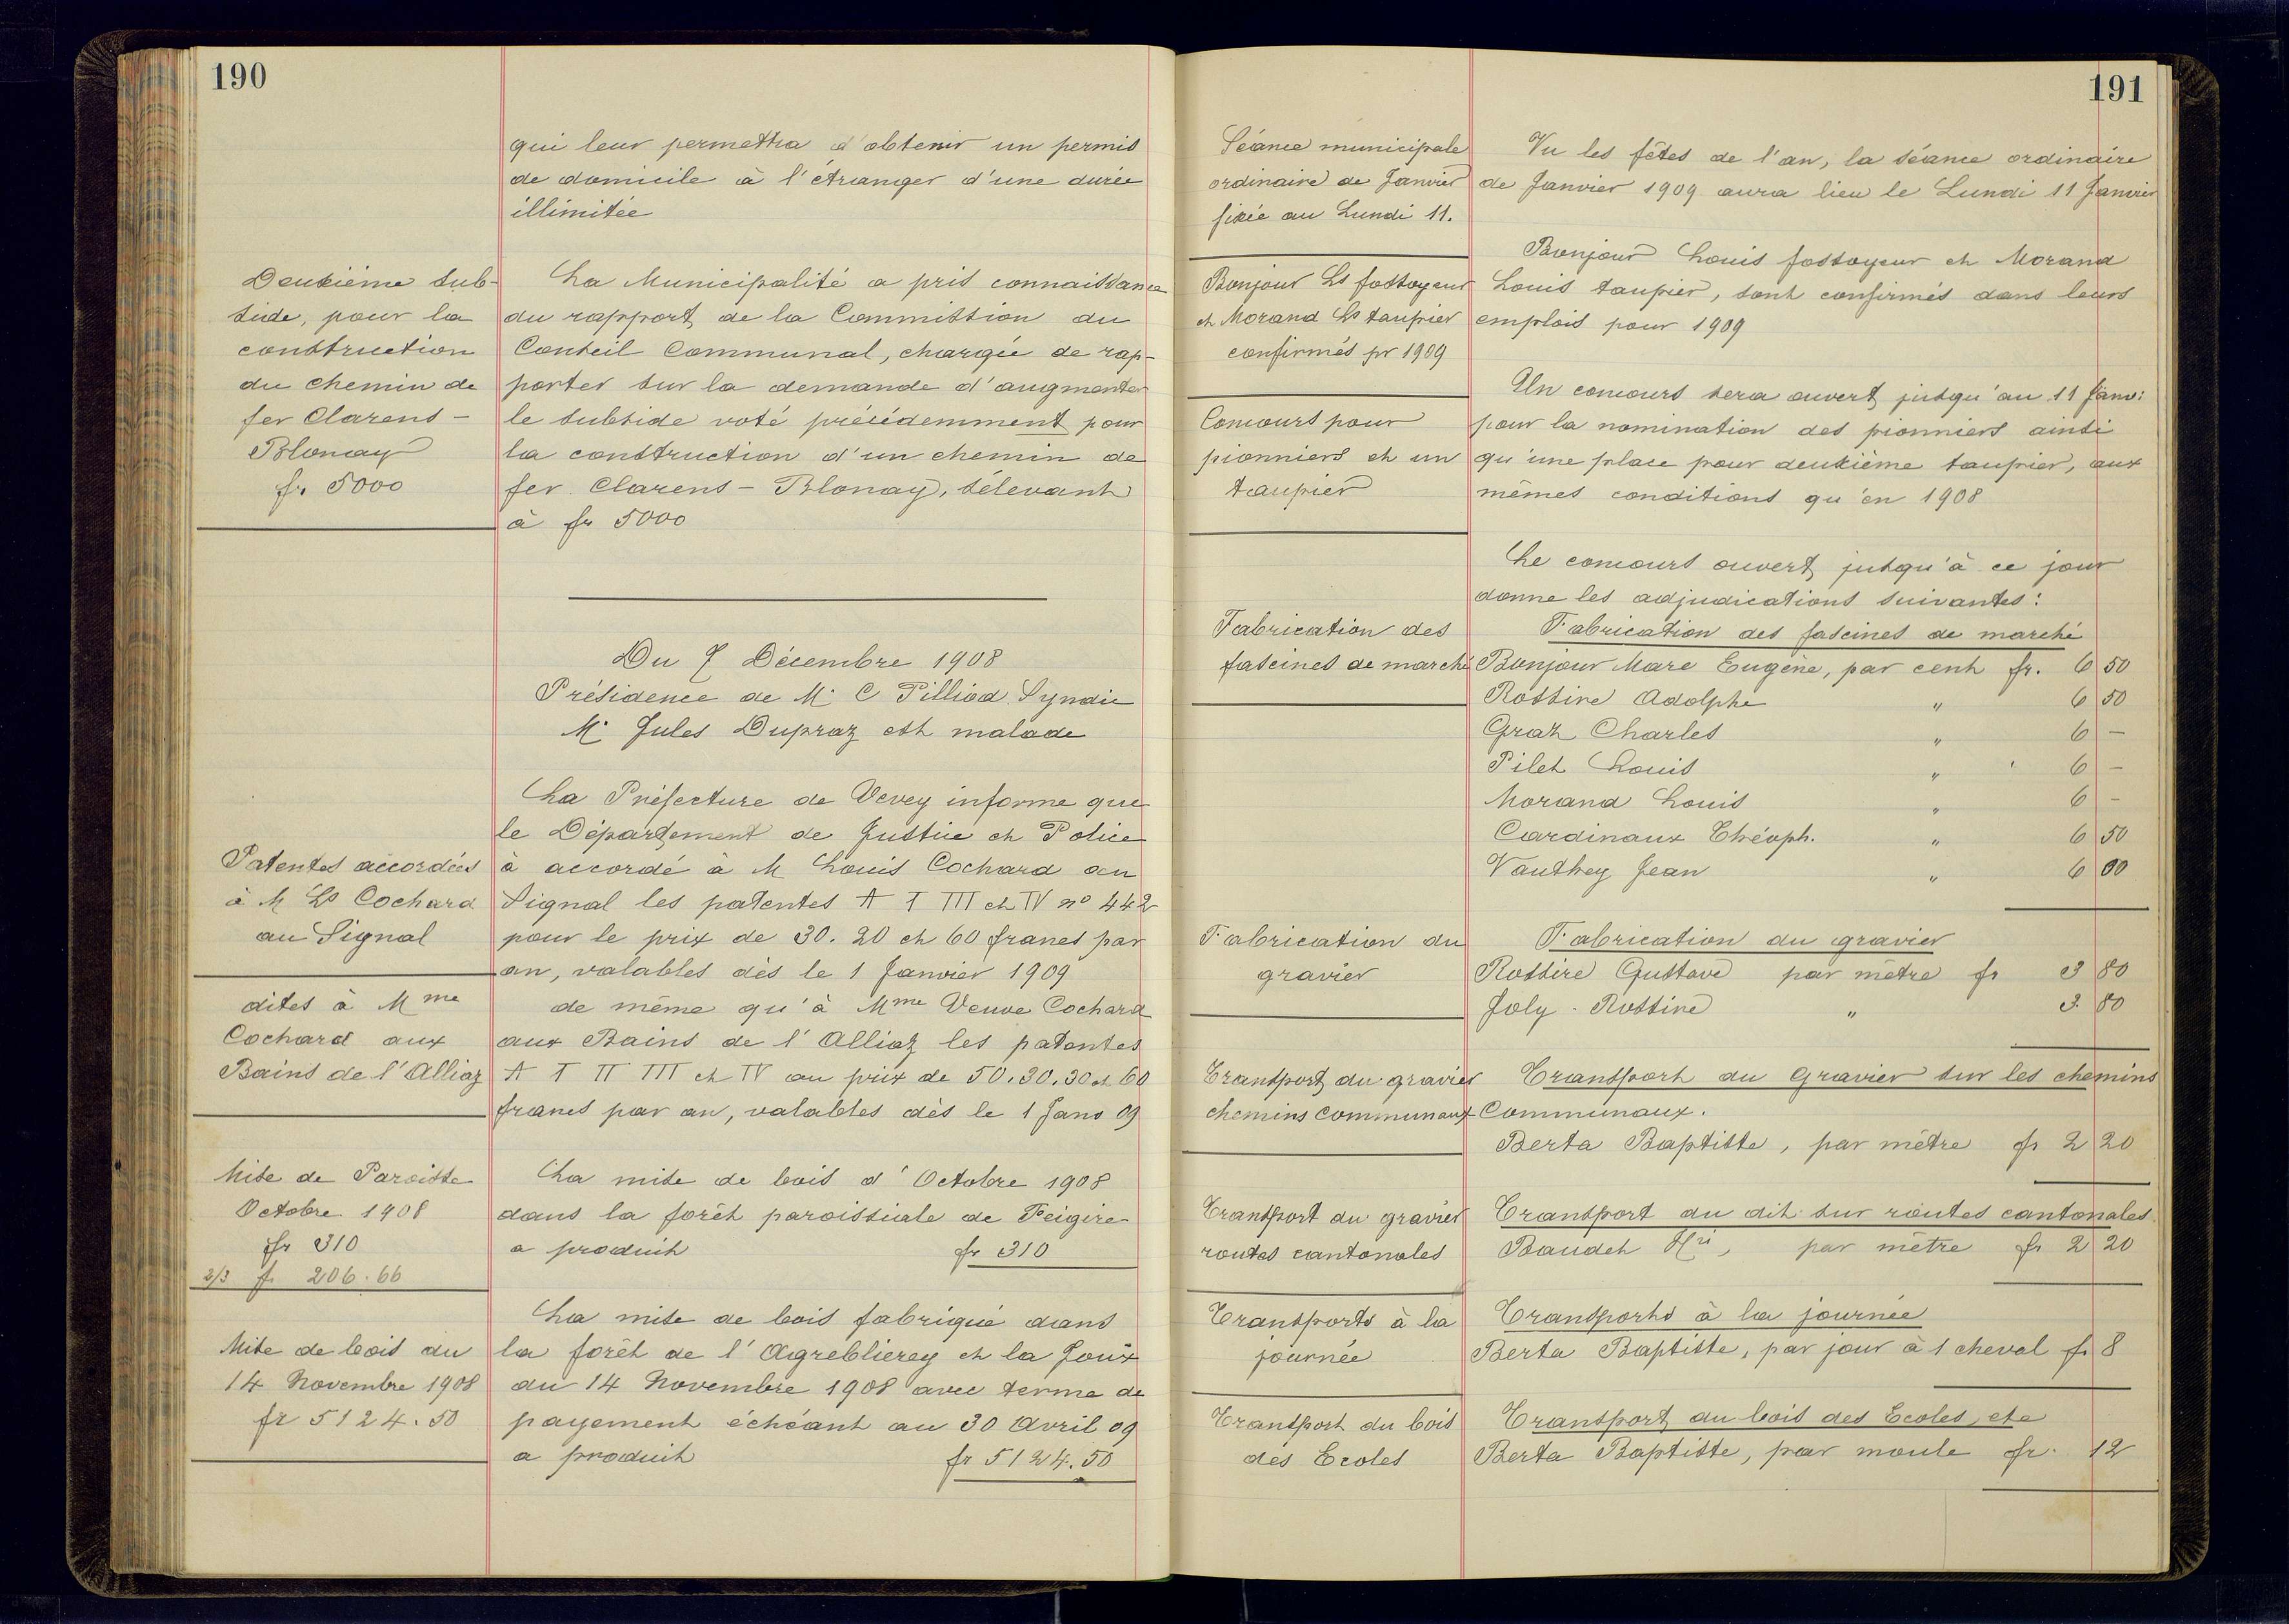 190
qui leur permettra d'obtenir un permis
de domicile à l'étranger d'une durée
illimitée
Deuxième sub-
side, pour la
construction
du chemin de
fer Clarens -
Blonay
fr. 5000
La Municipalité a pris connaissance
du rapport de la Commission du
Conseil Communal, chargée de rap-
porter sur la demande d'augmenter
le subside voté précédemment pour
la construction d'un chemin de
fer Clarens - Blonay, s'élevant
à fr 5000
Du 7 Décembre 1908
Présidence de Mr C Pilliod Syndic
Mr Jules Dupraz est malade
Patentes accordées
à M Ls Cochard
au Signal
La Préfecture de Vevey informe que
le Département de Justice et Police
à accordé à M Louis Cochard au
Signal les patentes A I III et IV no 442
pour le prix de 30. 20 et 60 francs par
an, valables dès le 1 Janvier 1909
dites à Mme
Cochard aux
Bains de l'Alliaz
de même qu'à Mme Veuve Cochard
aux Bains de l'Alliaz les patentes
A I II III et IV au prix de 50.30.30 et 60
francs par an, valables dès le 1 Janv 09
Mise de Paroisse
Octobre 1908
fr 310
2/3 fr 206.66
La mise de bois d'Octobre 1908
dans la forêt paroissiale de Feigire
a produit fr 310
Mise de bois du
14 Novembre 1908
fr 5124.50
La mise de bois fabriqué dans
la forêt de l'Agreblierey et la Joux
du 14 Novembre 1908 avec terme de
payement échéant au 30 Avril 09
a produit fr 5124.50
191
Séance municipale
ordinaire de Janvier
fixée au Lundi 11.
Vu les fêtes de l'an, la séance ordinaire
de Janvier 1909 aura lieu le Lundi 11 Janvier
Bonjour Ls fossoyeur
et Morand Ls taupier
confirmés pr 1909
Bonjour Louis fossoyeur et Morand
Louis taupier, sont confirmés dans leurs
emplois pour 1909
Concours pour
pionniers et un
taupier
Un concours sera ouvert jusqu'au 11 Janv:
pour la nomination des pionniers ainsi
qu'une place pour deuxième taupier, aux
mêmes conditions qu'en 1908
Le concours ouvert jusqu'à ce jour
donne les adjudications suivantes:
Fabrication des
fascines de marché
Fabrication des fascines de marché
Bonjour Marc Eugène, par cent fr. 6 50
Rossire Adolphe " 6 50
Graz Charles " 6 -
Pilet Louis " 6 -
Morand Louis " 6 -
Cardinaux Théoph. " 6 50
Vauthey Jean " 6 00
Fabrication du
gravier
Fabrication du gravier
Rossire Gustave par mètre fr 3 80
Joly - Rossire " 3 80
Transport du gravier
chemins communaux
Transport du Gravier sur les chemins
Communaux.
Berta Baptiste, par mètre fr 2 20
Transport du gravier
routes cantonales
Transport du dit sur routes cantonales
Baudet Hri, par mètre fr 2 20
Transports à la
journée
Transports à la journée
Berta Baptiste, par jour à 1 cheval fr 8
Transport du bois
des Ecoles
Transport du bois des Ecoles, etc
Berta Baptiste, par moule fr. 12